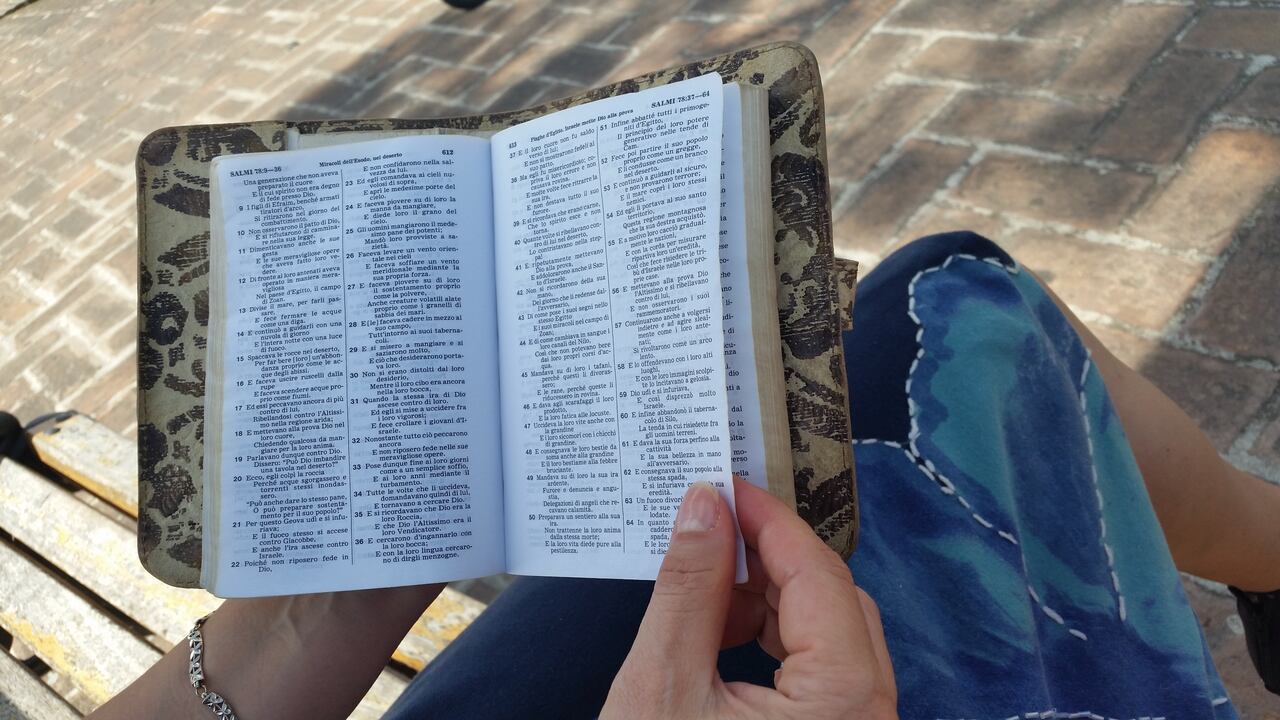 SALMI 78:9—36
Miracoli dell'Esodo, nel deserto
612
Una generazione che non aveva
preparato il cuore
E il cui spirito non era degno
di fede presso Dio.
9 I figli di Efraim, benché armati
tiratori d'arco,
Si ritirarono nel giorno del
combattimento.
10 Non osservarono il patto di Dio,
E si rifiutarono di cammina-
re nella sua legge.
11 Dimenticavano anche le sue
gesta
E le sue meravigliose opere
che aveva fatto loro ve-
dere.
12 Di fronte ai loro antenati aveva
operato in maniera mera-
vigliosa
Nel paese d'Egitto, il campo
di Zoan.
13 Divise il mare, per farli pas-
sare,
E fece fermare le acque
come una diga.
14 E continuò a guidarli con una
nuvola di giorno
E l'intera notte con una luce
di fuoco.
15 Spaccava le rocce nel deserto,
Per far bere [loro] un'abbon-
danza proprio come le ac-
que degli abissi.
16 E faceva uscire ruscelli dalla
rupe
E faceva scendere acque pro-
prio come fiumi.
17 Ed essi peccavano ancora di più
contro di lui,
Ribellandosi contro l'Altissi-
mo nella regione arida;
18 E mettevano alla prova Dio nel
loro cuore,
Chiedendo qualcosa da man-
giare per la loro anima.
19 Parlavano dunque contro Dio.
Dissero: "Può Dio imbandire
una tavola nel deserto?"
20 Ecco, egli colpì la roccia
Perché acque sgorgassero e
torrenti stessi inondas-
sero.
"Può anche dare lo stesso pane,
O può preparare sostenta-
mento per il suo popolo?"
21 Per questo Geova udì e si infu-
riava;
E il fuoco stesso si accese
contro Giacobbe,
E anche l'ira ascese contro
Israele.
22 Poiché non riposero fede in
Dio,
E non confidarono nella sal-
vezza da lui.
23 Ed egli comandava ai cieli nu-
volosi di sopra,
E aprì le medesime porte del
cielo.
24 E faceva piovere su di loro la
manna da mangiare,
E diede loro il grano del
cielo.
25 Gli uomini mangiarono il mede-
simo pane dei potenti;
Mandò loro provviste a sa-
zietà.
26 Faceva levare un vento orien-
tale nei cieli
E faceva soffiare un vento
meridionale mediante la
sua propria forza.
27 E faceva piovere su di loro
il sostentamento proprio
come la polvere,
Anche creature volatili alate
proprio come i granelli di
sabbia dei mari.
28 E [le] faceva cadere in mezzo al
suo campo,
Tutt'intorno ai suoi taberna-
coli.
29 E si misero a mangiare e si
saziarono molto,
E ciò che desideravano porta-
va loro.
30 Non si erano distolti dal loro
desiderio,
Mentre il loro cibo era ancora
nella loro bocca,
31 Quando la stessa ira di Dio
ascese contro di loro.
Ed egli si mise a uccidere fra
i loro vigorosi;
E fece crollare i giovani d'I-
sraele.
32 Nonostante tutto ciò peccarono
ancora
E non riposero fede nelle sue
meravigliose opere.
33 Pose dunque fine ai loro giorni
come a un semplice soffio,
E ai loro anni mediante il
turbamento.
34 Tutte le volte che li uccideva,
domandavano quindi di lui,
E tornavano a cercare Dio.
35 E si ricordavano che Dio era la
loro Roccia,
E che Dio l'Altissimo era il
loro Vendicatore.
36 E cercarono d'ingannarlo con
la loro bocca;
E con la loro lingua cercaro-
no di dirgli menzogne.
613
Piaghe d'Egitto. Israele mette Dio alla prova
SALMI 78:37—64
37 E il loro cuore non fu saldo
verso di lui;
E non si mostrarono fedeli al
suo patto.
38 Ma egli fu misericordioso; co-
priva il loro errore e non
causava rovina.
E molte volte fece ritrarre la
sua ira,
E non destava tutto il suo
furore.
39 E si ricordava che erano carne,
Che lo spirito esce e non
torna.
40 Quante volte si ribellavano con-
tro di lui nel deserto,
Lo contristavano nella step-
pa!
41 E ripetutamente mettevano
Dio alla prova,
E addolorarono anche il San-
to d'Israele.
42 Non si ricordarono della sua
mano,
Del giorno che li redense dal-
l'avversario,
43 Di come pose i suoi segni nello
stesso Egitto
E i suoi miracoli nel campo di
Zoan;
44 E di come cambiava in sangue i
loro canali del Nilo,
Così che non potevano bere
dai loro propri corsi d'ac-
qua.
45 Mandava su di loro i tafani,
perché questi li divoras-
sero;
E le rane, perché queste li
riducessero in rovina.
46 E dava agli scarafaggi il loro
prodotto,
E la loro fatica alle locuste.
47 Uccideva la loro vite anche con
la grandine
E i loro sicomori con i chicchi
di grandine.
48 E consegnava le loro bestie da
soma anche alla grandine
E il loro bestiame alla febbre
bruciante.
49 Mandava su di loro la sua ira
ardente,
Furore e denuncia e angu-
stia,
Delegazioni di angeli che re-
cavano calamità.
50 Preparava un sentiero alla sua
ira.
Non trattenne la loro anima
dalla stessa morte;
E la loro vita diede pure alla
pestilenza.
51 Infine abbatté tutti i primoge-
niti d'Egitto,
Il principio del loro potere
generativo nelle tende di
Cam.
52 Fece poi partire il suo popolo
proprio come un gregge,
E li condusse come un branco
nel deserto.
53 E continuò a guidarli al sicuro,
e non provarono terrore;
E il mare coprì i loro stessi
nemici.
54 Ed egli li portava al suo santo
territorio,
Questa regione montagnosa
che la sua destra acquistò.
55 E a motivo loro cacciò gradual-
mente le nazioni,
E con la corda per misurare
ripartiva loro un'eredità,
Così che fece risiedere le tri-
bù d'Israele nelle loro pro-
prie case.
56 E mettevano alla prova Dio
l'Altissimo e si ribellavano
contro di lui,
E non osservarono i suoi
rammemoratori.
57 Continuarono anche a volgersi
indietro e ad agire sleal-
mente come i loro ante-
nati;
Si rivoltarono come un arco
lento.
58 E lo offendevano con i loro alti
luoghi,
E con le loro immagini scolpi-
te lo incitavano a gelosia.
59 Dio udì e si infuriava,
E così disprezzò molto
Israele.
60 E infine abbandonò il taberna-
colo di Silo,
La tenda in cui risiedette fra
gli uomini terreni.
61 E dava la sua forza perfino alla
cattività
E la sua bellezza in mano
all'avversario.
62 E consegnava il suo popolo alla
stessa spada,
E si infuriava contro la sua
eredità.
63 Un fuoco divorò
E le sue
lodate.
64 In quanto
caddero
spada,
E le loro
si die